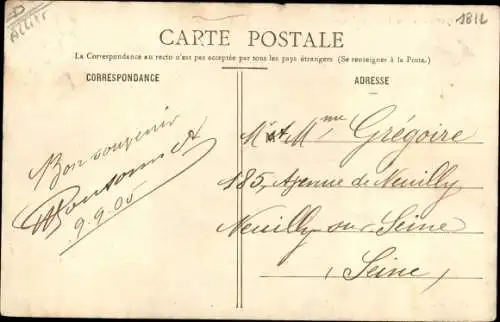 Allier
1812
CARTE POSTALE
La Correspondance au recto n'est pas acceptée par tous les pays étrangers (Se renseigner à la Poste.)
CORRESPONDANCE
ADRESSE
Bon souvenir
9.9.05
Mr et Mme Grégoire
185, Avenue de Neuilly
Neuilly-sur-Seine
(Seine)